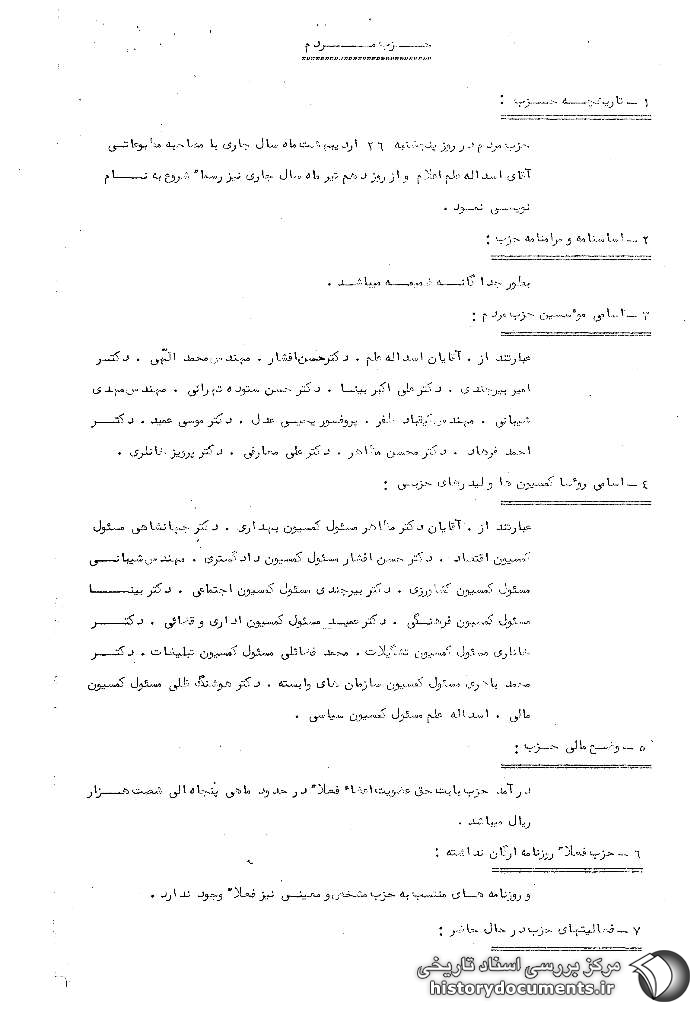 حزب مردم
۱ - تاریخچه حزب :
حزب مردم در روز پنجشنبه ۲٦ اردیبهشت ماه سال جاری با مصاحبه مطبوعاتی
آقای اسداله علم اعلام و از روز دهم تیر ماه سال جاری نیز رسما" شروع به نام
نویسی نمود .
۲ - اساسنامه و مرامنامه حزب :
بطور جدا گانه ضمیمه میباشد .
۳ - اسامی موسسین حزب مردم :
عبارتند از . آقایان اسداله علم . دکتر حسن افشار . مهندس محمد الهی . دکتر
امیر بیرجندی . دکتر علی اکبر بینا . دکتر حسن ستوده تهرانی . مهندس مهدی
شیبانی . مهندس کیقباد ظفر . پروفسور یحیی عدل . دکتر موسی عمید . دکتر
احمد فرهاد . دکتر محسن مظاهر . دکتر علی معارفی . دکتر پرویز خانلری .
٤ - اسامی روسا کمسیون ها و لیدرهای حزبی :
عبارتند از . آقایان دکتر مظاهر مسئول کمسیون بهداری . دکتر جهانشاهی مسئول
کمسیون اقتصاد . دکتر حسن افشار مسئول کمسیون دادگستری . مهندس شیبانی
مسئول کمسیون کشاورزی . دکتر بیرجندی مسئول کمسیون اجتماعی . دکتر بینا
مسئول کمسیون فرهنگی . دکتر عمید مسئول کمسیون اداری و قضائی . دکتر
خانلری مسئول کمسیون تشکیلات . محمد فضائلی مسئول کمسیون تبلیغات . دکتر
محمد باهری مسئول کمسیون سازمان های وابسته . دکتر هوشنگ ظلی مسئول کمسیون
مالی . اسداله علم مسئول کمسیون سیاسی .
۵ - وضع مالی حزب :
درآمد حزب بابت حق عضویت اعضاء فعلا" در حدود ماهی پنجاه الی شصت هزار
ریال میباشد .
٦ - حزب فعلا" روزنامه ارگان نداشته :
و روزنامه های منتسب به حزب مشخص و معینی نیز فعلا" وجود ندارد .
۷ - فعالیتهای حزب در حال حاضر :
مرکز بررسی اسناد تاریخی
historydocuments.ir